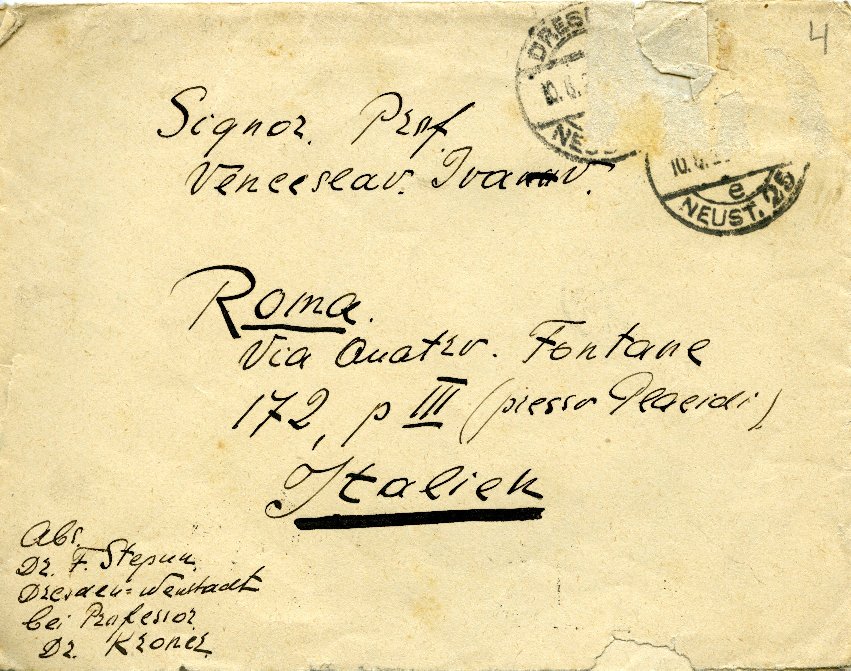 4
DRES
10.6.2
NEU
10.6.2
e
NEUST. 25
Signor. Prof
Venceslav. Ivanov.
Roma.
Via Quatro. Fontane
172, p III (presso Placidi)
Italien
Abs.
Dr. F. Stepun.
Dresden=Neustadt
bei Professor
Dr. Kroner.